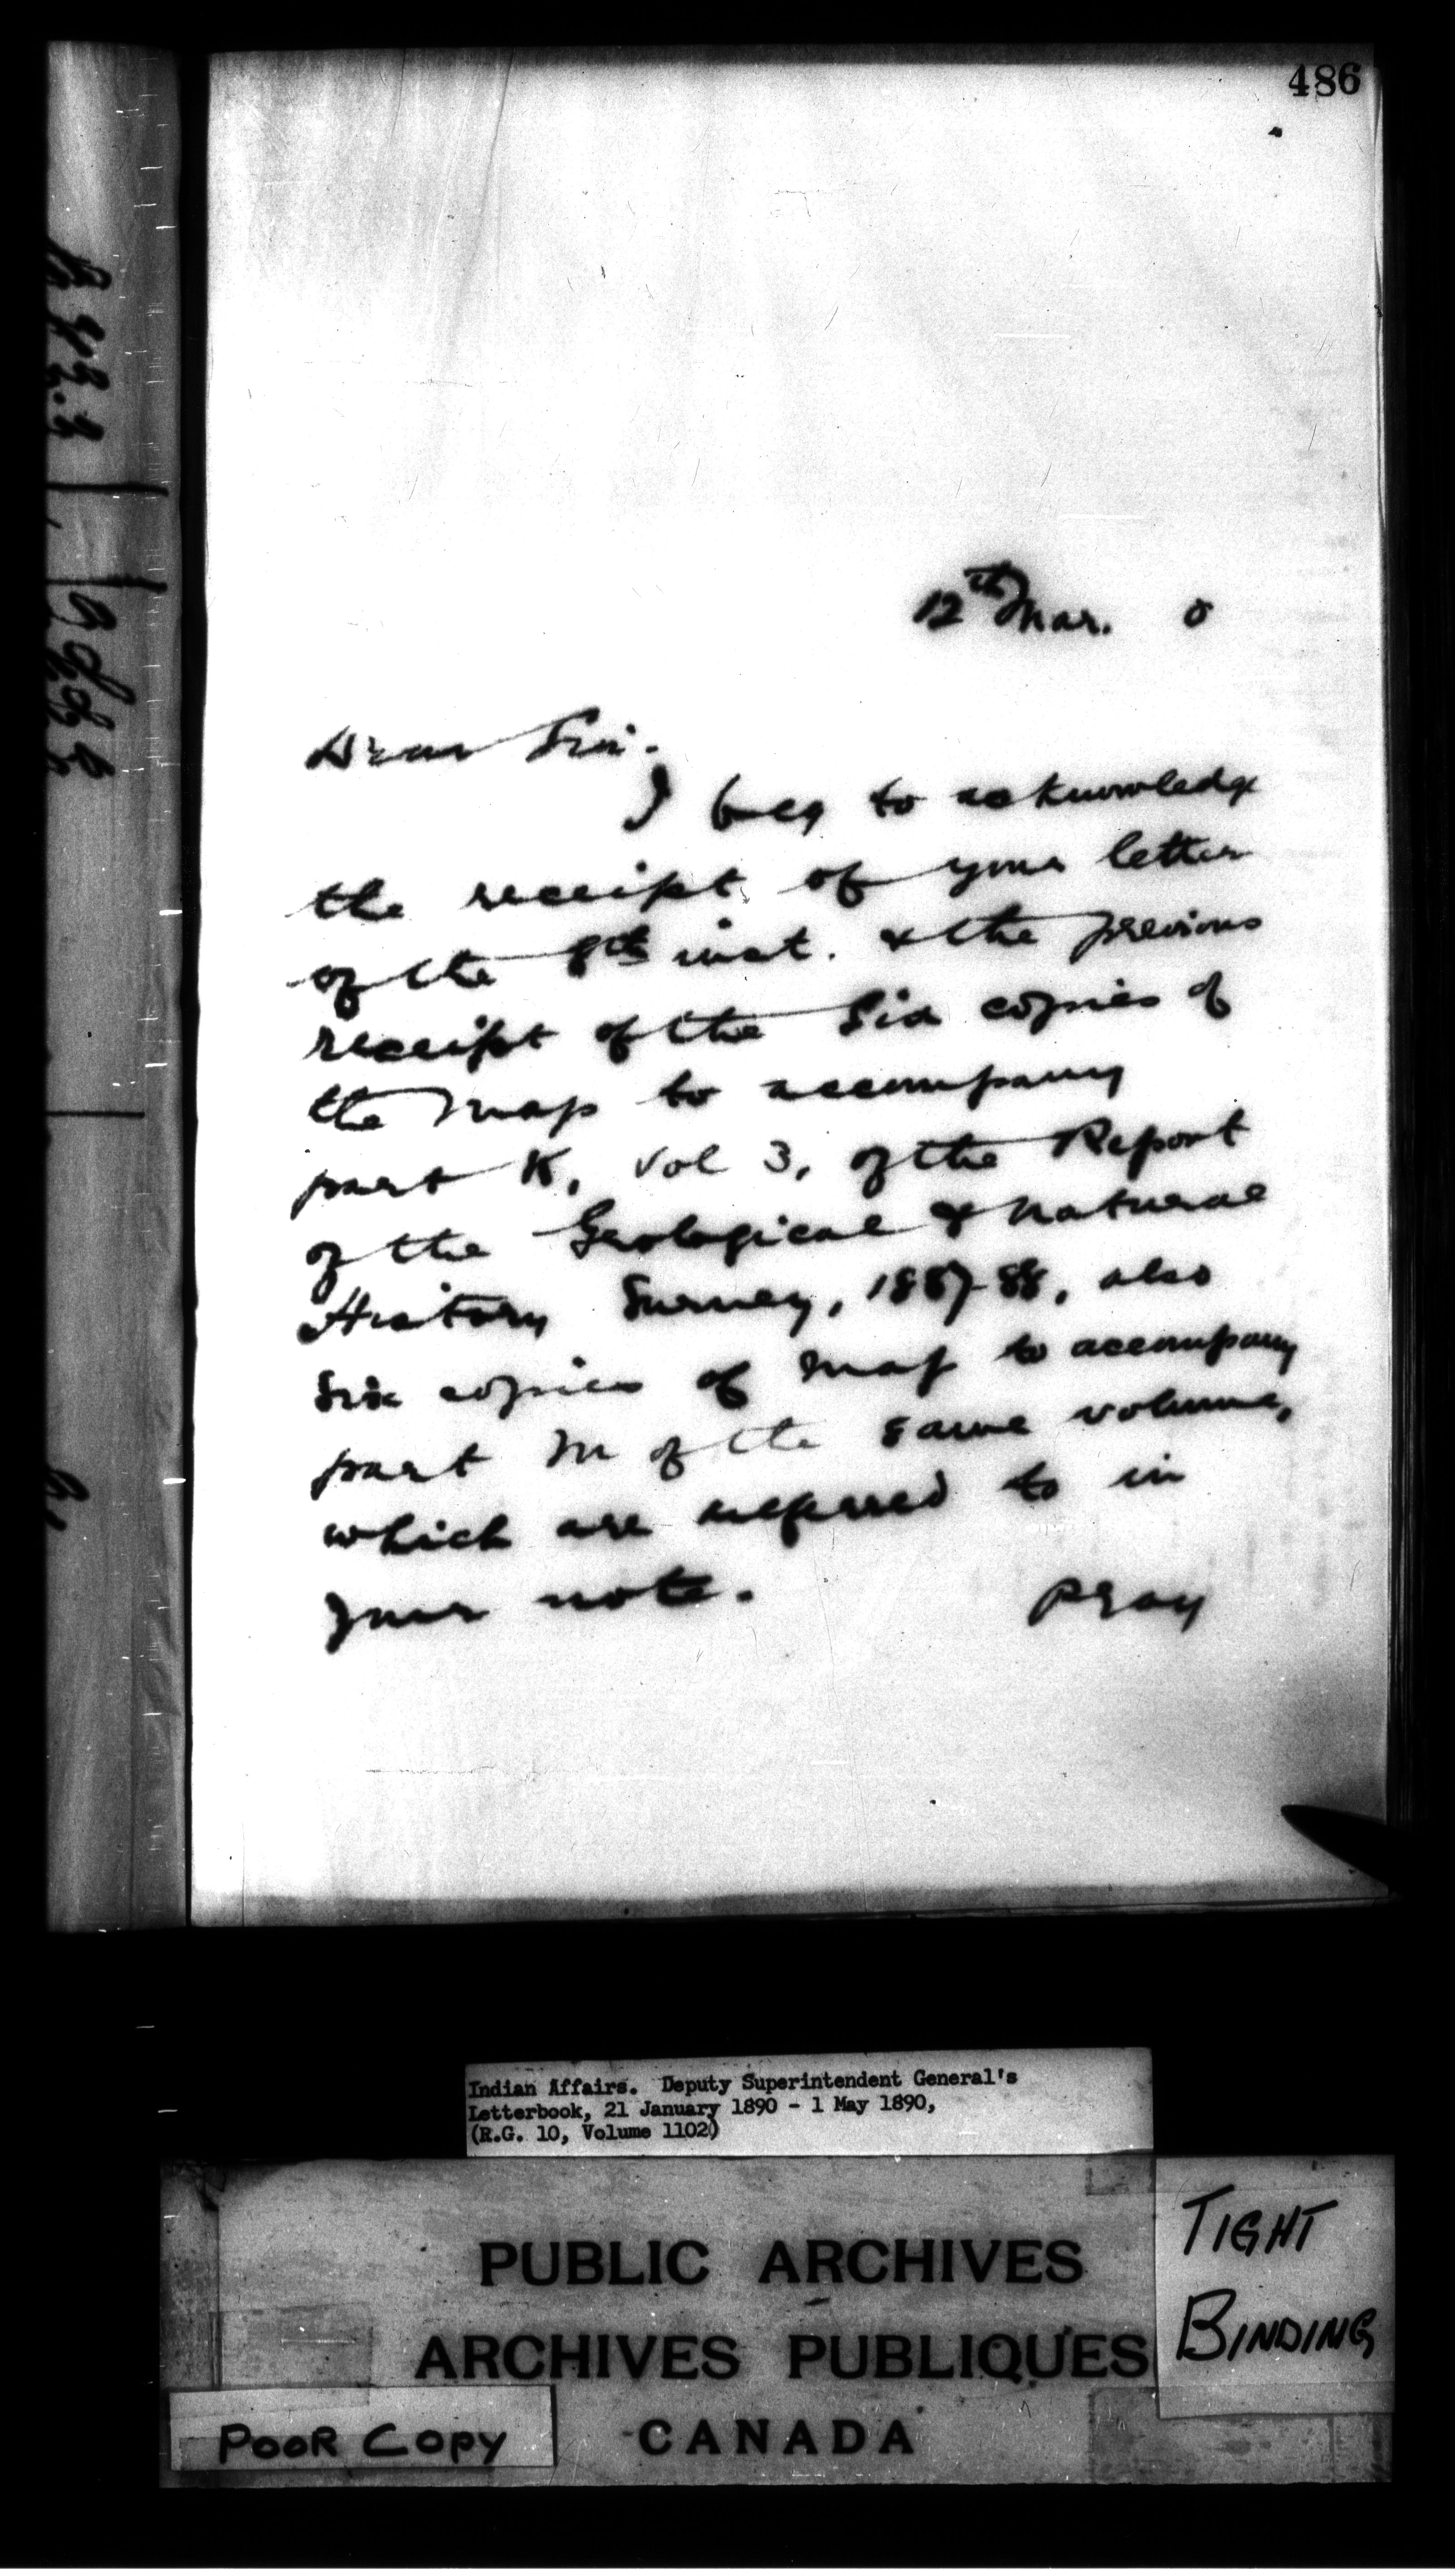 486
12th Mar. 0
Dear Sir.
I beg to acknowledge
the receipt of your letter
of the 8th inst. & the previous
receipt of the Six copies of
the Map to accompany
part K, Vol 3, of the Report
of the Geological & Natural
History Survey, 1887-88, also
Six copies of Map to accompany
part M of the same volume,
which are referred to in
your note. Pray
Indian Affairs. Deputy Superintendent General's
Letterbook, 21 January 1890 - 1 May 1890,
(R.G. 10, Volume 1102)
PUBLIC ARCHIVES
ARCHIVES PUBLIQUES
CANADA
TIGHT
BINDING
POOR COPY